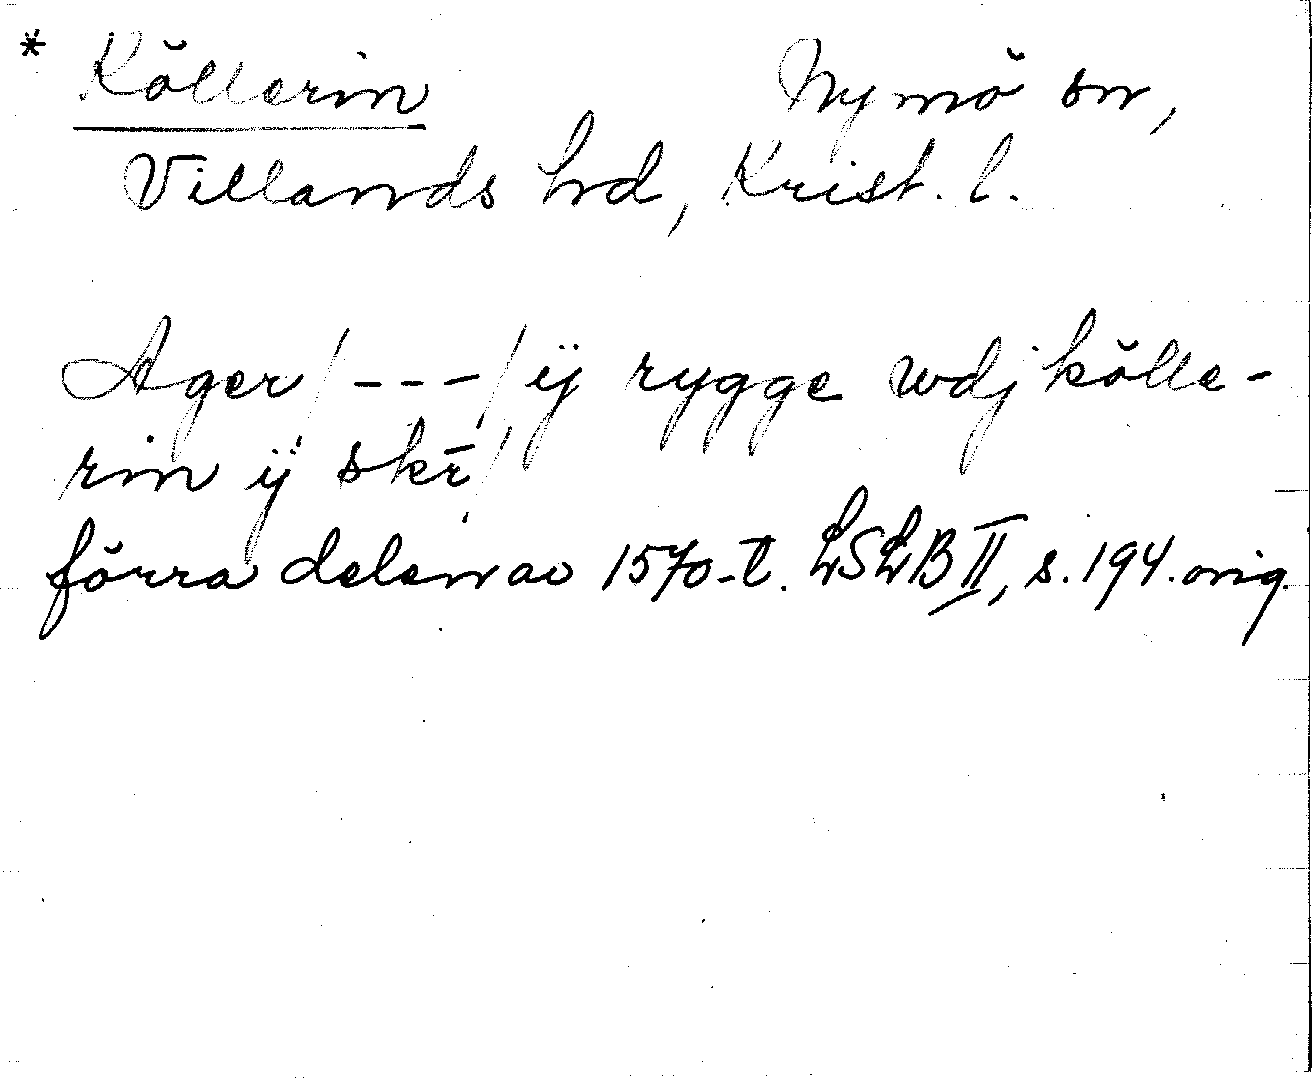 * Köllerin Nymö sn,
Villands hrd, Krist. l.
Ager /---/ ij rygge wdj kölle-
rin ij skr̄
förra delen av 1570-t. LSLB II, s. 194. orig.